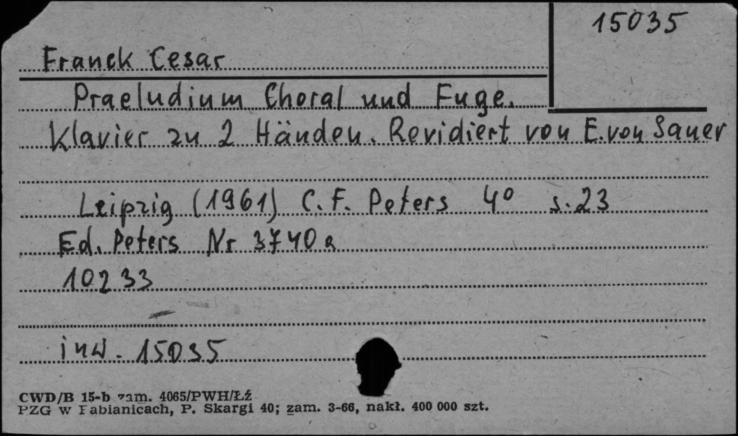 15035
Franck Cesar
Praeludium Choral und Fuge.
Klavier zu 2 Händen. Revidiert von E. von Sauer
Leipzig (1961) C. F. Peters 4° s. 23
Ed. Peters Nr 3740a
10233
inw. 15035
CWD/B 15-b zam. 4065/PWH/ŁŹ
PZG w Pabianicach, P. Skargi 40; zam. 3-66, nakł. 400 000 szt.